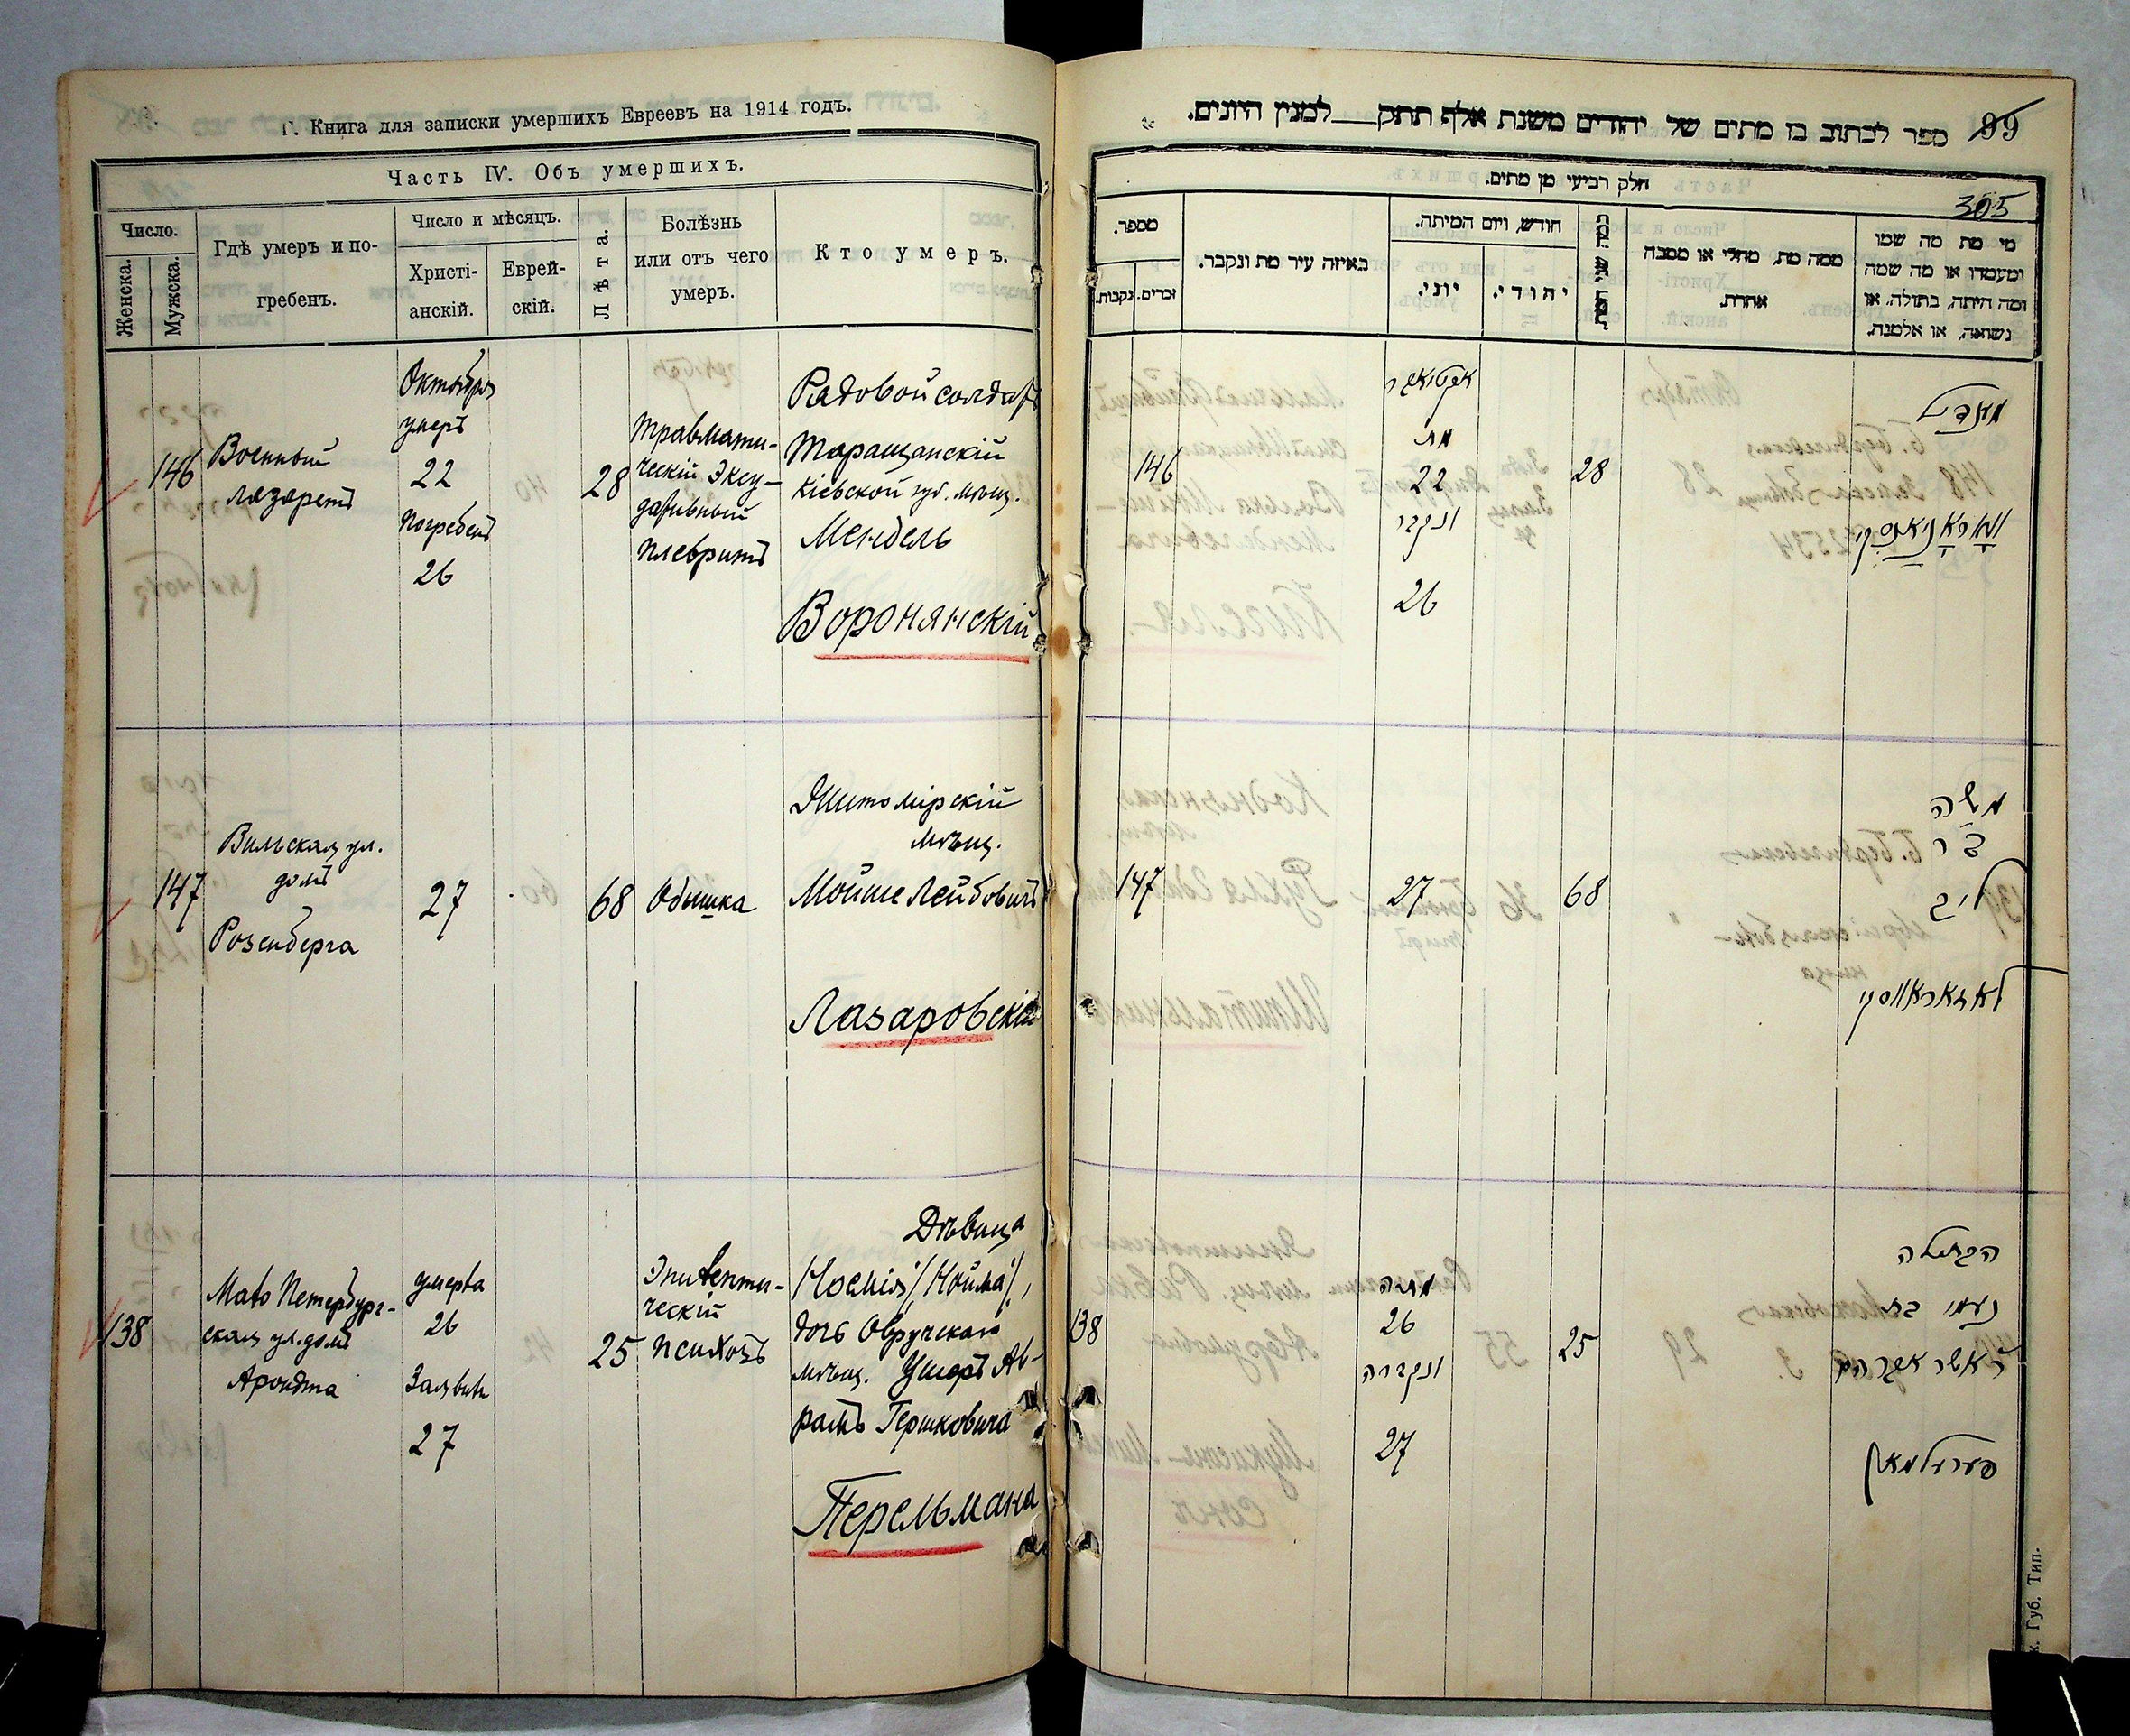 Г. Книга для записки умершихъ Евреевъ на 1914 годъ.
Часть IV. Объ умершихъ.
Число.
Женска.
Мужска.
Гдѣ умеръ и по-
гребенъ.
Число и мѣсяцъ.
Христі-
анскій.
Еврей-
скій.
Лѣта.
Болѣзнь
или отъ чего
умеръ.
Кто умеръ.
146
Военный
лазаретъ
Октября
умеръ
22
погребенъ
26
28
травмати-
ческій эксу-
дативный
плевритъ
Рядовой солдатъ
Таращанскій
Кіевской губ. мѣщ.
Мендель
Воронянскій
147
Вильская ул.
домъ
Розенберга
27
68
Одышка
Житомірскій
мѣщ.
Мойше Лейбовичъ
Лазаровскій
138
Мало Петербург-
ская ул. домъ
Арондта
умерла
26
Заявили
27
25
Эпилепти-
ческій
психозъ
Дѣвица
Ноемія /Нойма/,
дочь Овручскаго
мѣщ. Ушеръ Ав-
рамъ Гершковича
Перельмана
99
ספר לכתוב בו מתים של יהודים משנת אלף תתק למנין היונים.
חלק רביעי מן מתים.
305
מספר.
זכרים.
נקבות.
באיזה עיר מת ונקבר.
חודש, ויום המיתה.
יוני.
יהודי.
ממה מת, מחלי או מסבה
אחרת.
מי מת מה שמו
ומעמדו או מה שמה
ומה היתה, בתולה, או
נשואה, או אלמנה.
146
אקטאבר
מת
22
ונקבר
26
28
מענדיל
וואראניאנסקי
147
27
68
משה
ב״ר
ליב
לאזאראווסקי
138
מתה
26
ונקברה
27
25
הבתולה
נעמי בת
ר׳ אשר אברהם
פערעלמאן
к. Губ. Тип.